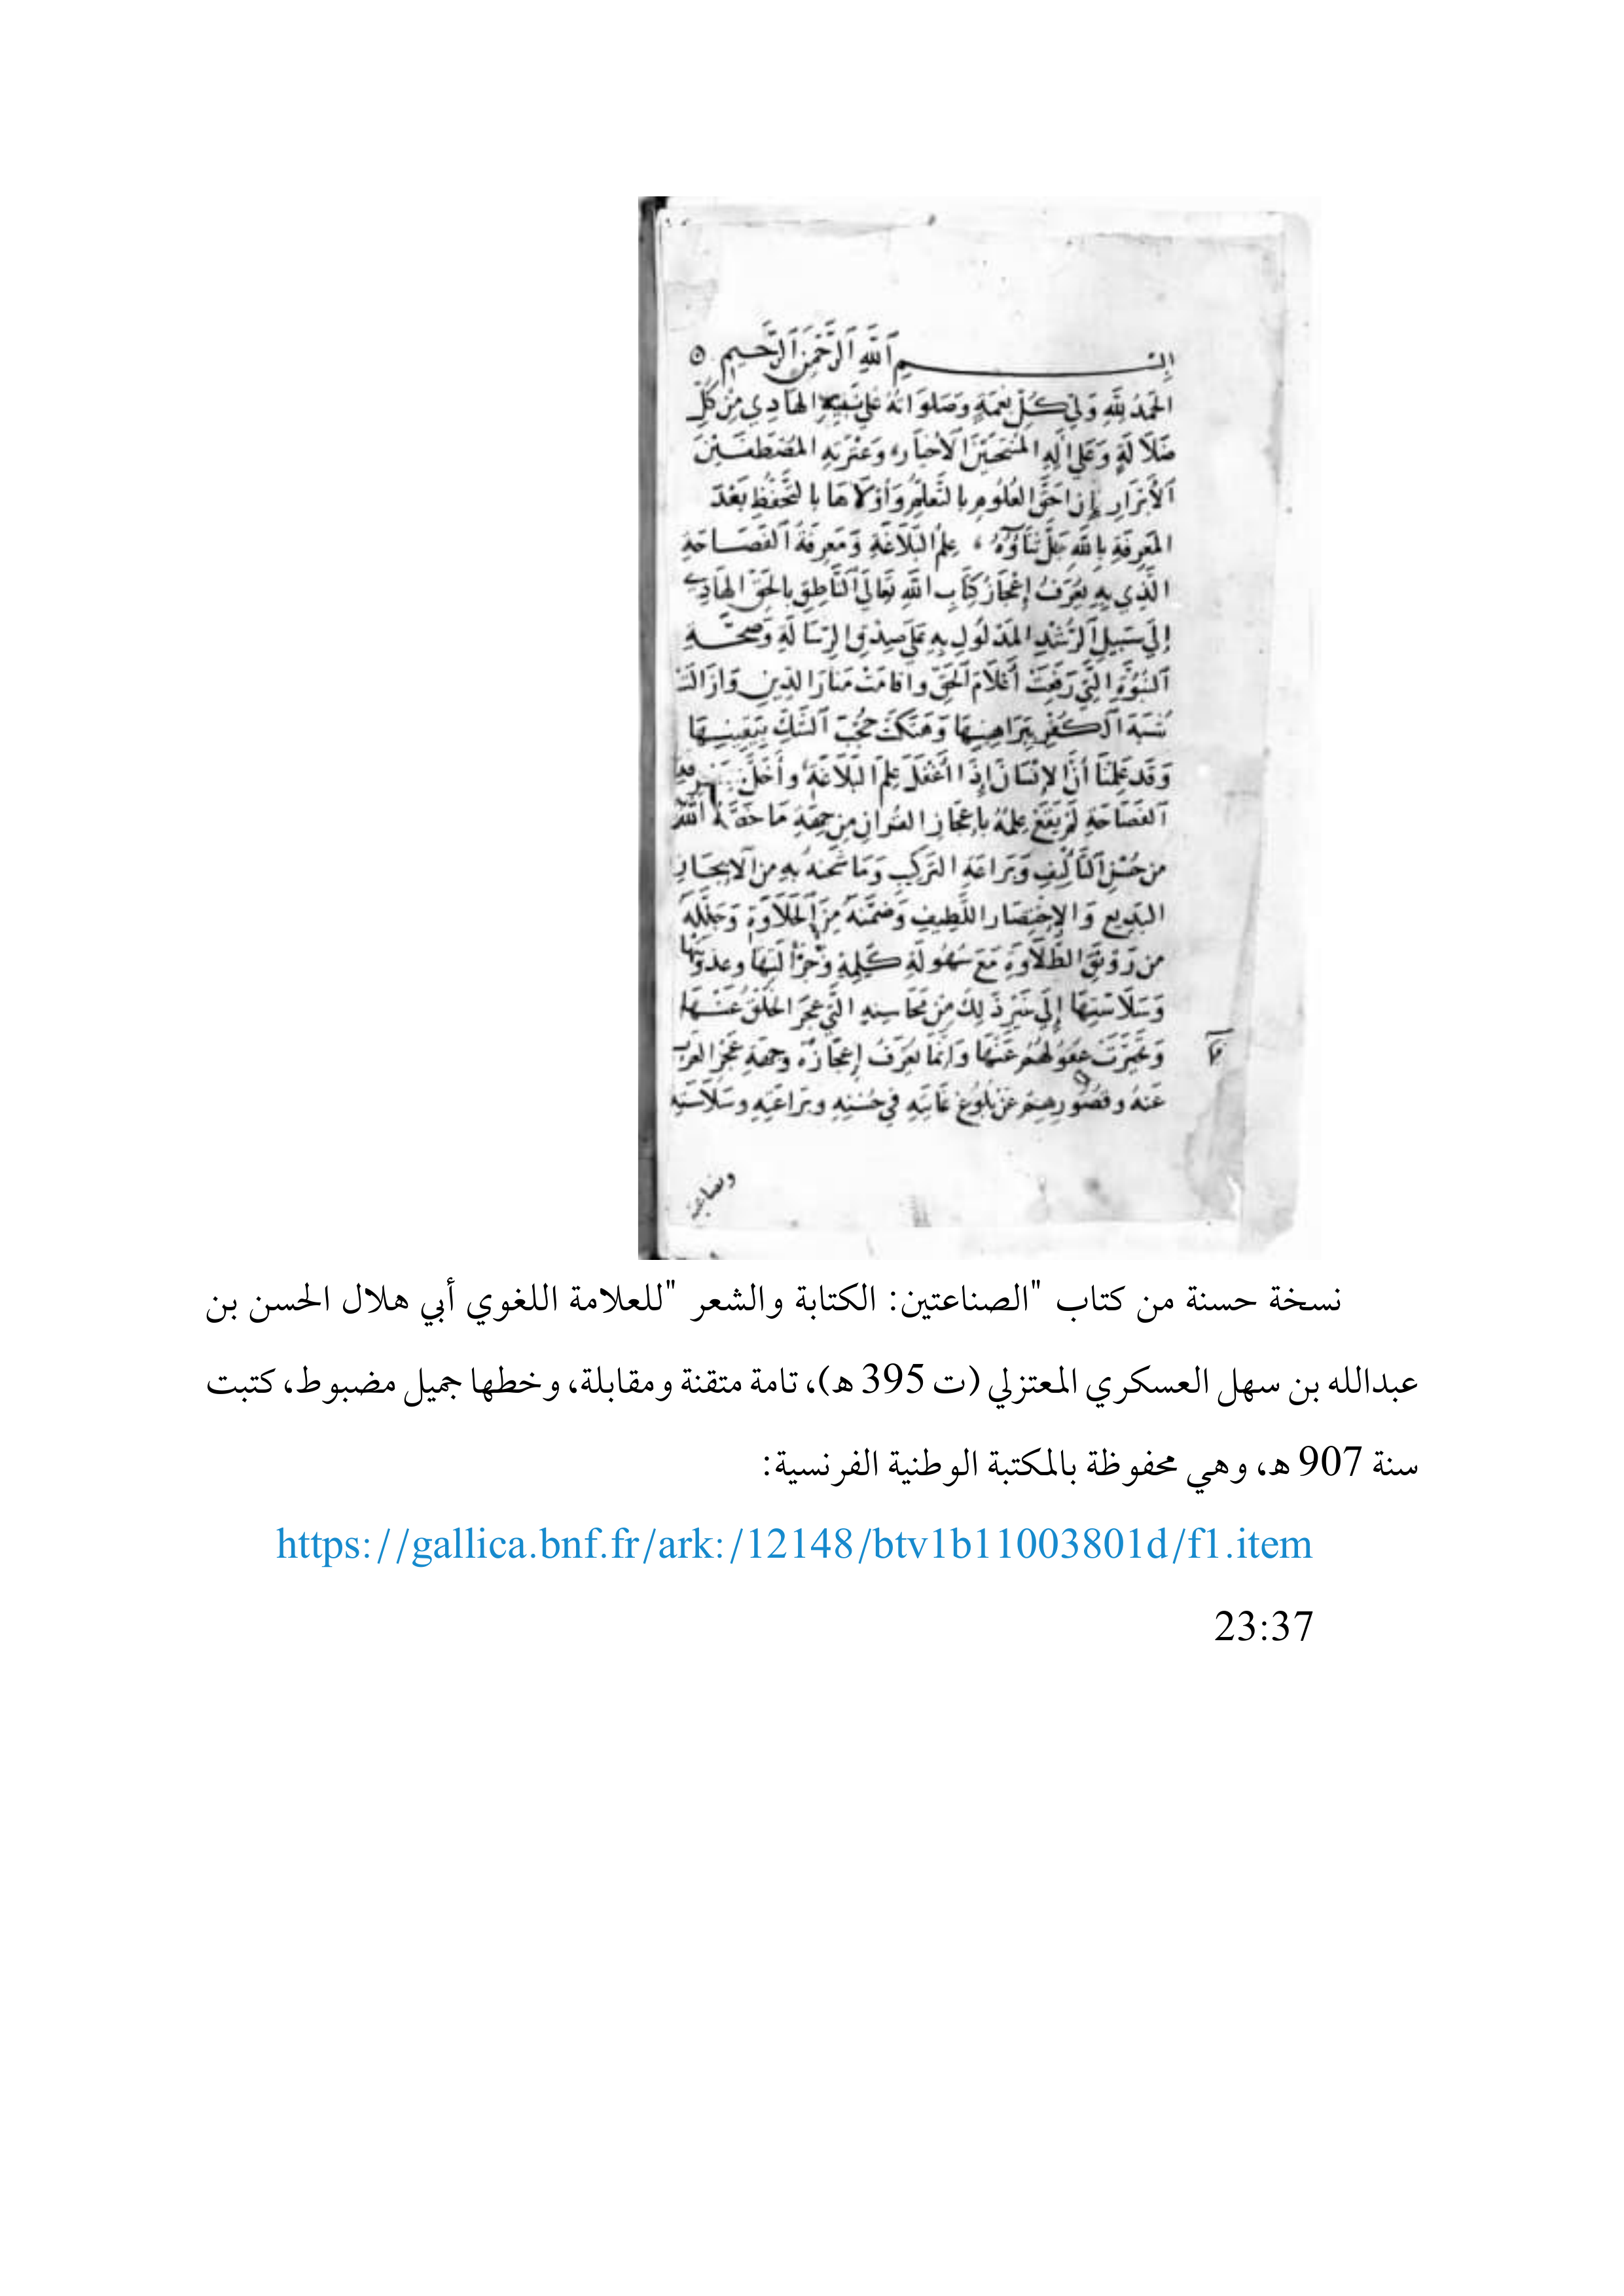 بسم الله الرحمن الرحيم
الحمد لله ولي كل نعمة وصلواته على نبيه الهادي من كل
ضلالة وعلى اله المنتجبين الأخيار وعترته المصطفين
الأبرار إن احق العلوم بالتعلم وأولاها بالتحفظ بعد
المعرفة بالله جل ثناؤه علم البلاغة ومعرفة الفصاحة
الذي به يعرف إعجاز كتاب الله تعالى الناطق بالحق الهادي
إلى سبيل الرشد المدلول به على صدق الرسالة وصحة
النبوة التي رفعت أعلام الحق واقامت منار الدين وازالت
شبه الكفر ببراهينها وهتكت حجب الشك بيقينها
وقد علمنا أن الإنسان إذا أغفل علم البلاغة وأخل بمعرفة
الفصاحة لم يقع علمه بإعجاز القران من جهة ما خصه الله
من حسن التأليف وبراعة التركيب وما شحنه به من الايجاز
البديع والإختصار اللطيف وضمنه من الحلاوة وجلله
من رونق الطلاوة مع سهولة كلمه وجزالتها وعذوبتها
وسلاستها إلى غير ذلك من محاسنه التي عجز الخلق عنها
وتحيرت عقولهم عنها وانما يعرف إعجازه وجهة عجز العرب
عنه وقصورهم عن بلوغ غايته في حسنه وبراعته وسلاسته
نسخة حسنة من كتاب "الصناعتين: الكتابة والشعر "للعلامة اللغوي أبي هلال الحسن بن
عبدالله بن سهل العسكري المعتزلي (ت 395 ه)، تامة متقنة ومقابلة، وخطها جميل مضبوط، كتبت
سنة 907 ه، وهي محفوظة بالمكتبة الوطنية الفرنسية:
https://gallica.bnf.fr/ark:/12148/btv1b11003801d/f1.item
23:37